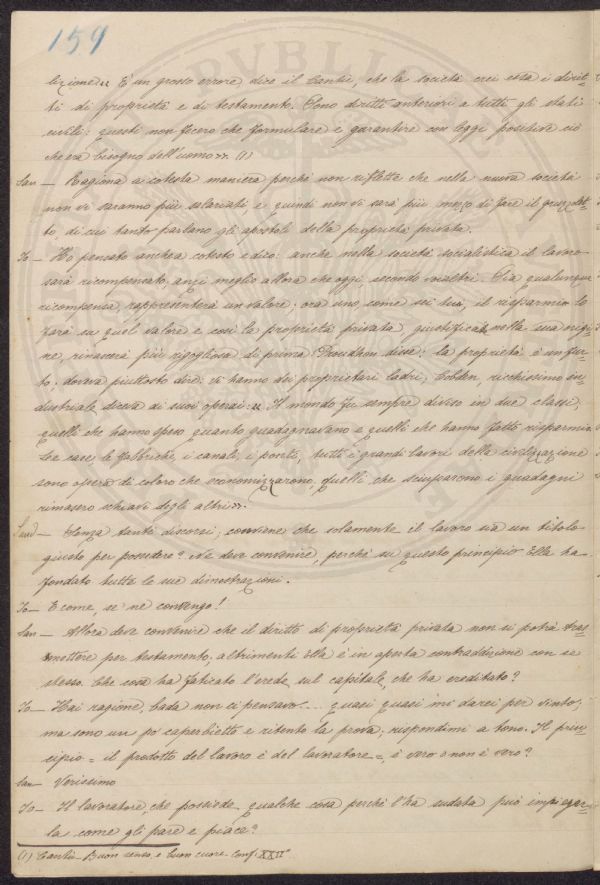 159
lizione « È un grosso errore dice il Cantù, che la società crei essa i dirit-
ti di proprietà e di testamento. Sono diritti anteriori a tutti gli stati
civili: questi non fecero che formulare e garantire con leggi positive ciò
che era bisogno dell'uomo ». (1)
San — Ragiona a cotesta maniera perché non riflette che nella nuova società
non vi saranno più salariati, e quindi non vi sarà più mezzo di fare il gruzzolet-
to, di cui tanto parlano gli apostoli della proprietà privata.
Io — Ho pensato anche a cotesto e dico: anche nella società socialistica il lavoro
sarà ricompensato, anzi meglio allora che oggi, secondo voialtri. Sia qualunque
ricompensa, rappresenterà un valore; ora uno, come sei tu, il risparmio lo
farà su quel valore e così la proprietà privata, giustificata nella sua origi-
ne, rinascerà più rigogliosa di prima. Proudhon disse: la proprietà è un fur-
to, doveva piuttosto dire: vi hanno dei proprietari ladri; Cobden, ricchissimo in-
dustriale diceva ai suoi operai: « Il mondo fu sempre diviso in due classi,
quelli che hanno speso quanto guadagnavano e quelli che hanno fatto risparmio.
Le case, le fabbriche, i canali, i ponti, tutti i grandi lavori della civilizzazione
sono opera di coloro che economizzarono. Quelli che sciuparono i guadagni
rimasero schiavi degli altri ».
Sand — Senza tanti discorsi; conviene che solamente il lavoro sia un titolo
giusto per possedere? Ne deve convenire, perché su questo principio Ella ha
fondato tutte le sue dimostrazioni.
Io — E come, se ne convengo!
San — Allora deve convenire che il diritto di proprietà privata non si potrà tras-
mettere per testamento, altrimenti Ella è in aperta contraddizione con se
stesso. Che cosa ha faticato l'erede sul capitale, che ha ereditato?
Io — Hai ragione, bada non ci pensavo.... quasi quasi mi darei per vinto;
ma sono un po' caparbietto e ritento la prova; rispondimi a tono. Il prin-
cipio = il prodotto del lavoro è del lavoratore =, è vero o non è vero?
San — Verissimo
Io — Il lavoratore, che possiede qualche cosa perché l'ha sudata può impiegar-
la come gli pare e piace?
(1) Cantù — Buon senso e buon cuore — Conf. XXIIª